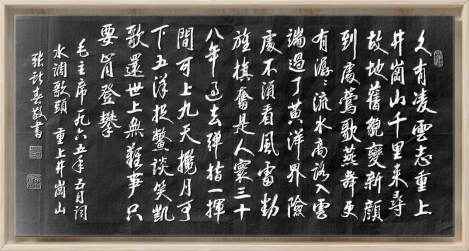 久有凌雲志重上
井崗山千里來尋
故地舊貌變新顔
到處鶯歌燕舞更
有潺〻流水高路入雲
端過了黄洋界險
處不須看風雷動
旌旗奮是人寰三十
八年過去彈指一揮
間可上九天攬月可
下五洋捉鱉談笑凱
歌還世上無難事只
要肯登攀
毛主席一九六五年五月詞
水調歌頭 重上井崗山
春敬書